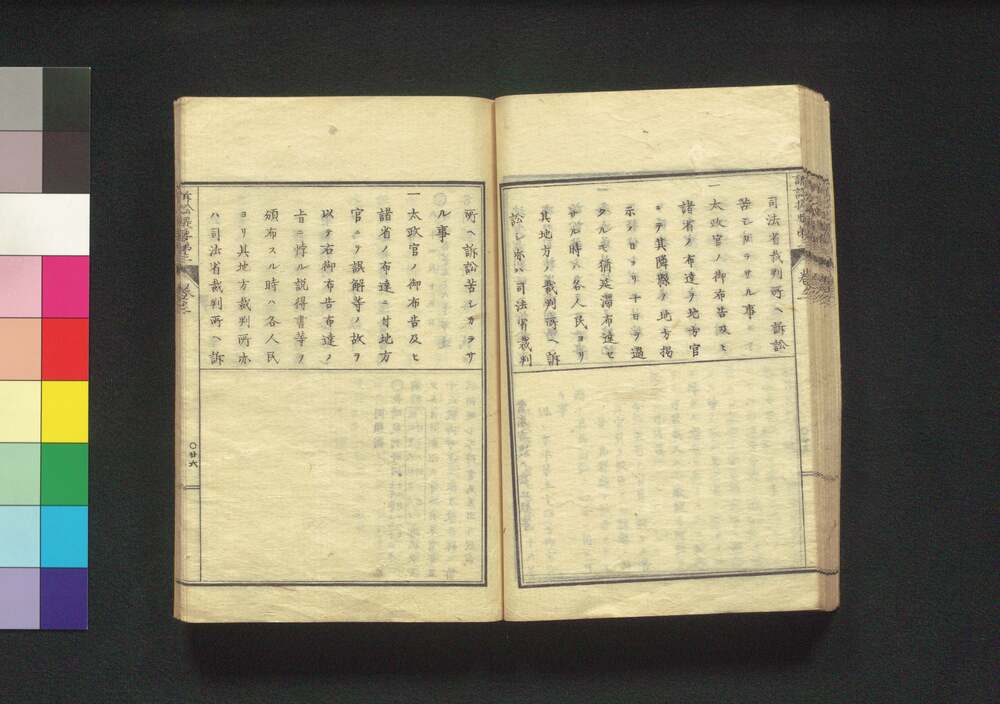 司法省裁判所ヘ訴訟
苦シカラサル事
一太政官ノ御布告及ヒ
諸省ノ布達ヲ地方官
ニテ其隣縣ノ地方掲
示ノ日ヨリ十日ヲ過
クルモ猶延滞布達セ
サル時ハ各人民ヨリ
其地方ノ裁判所ヘ訴
訟シ亦ハ司法省裁判
所ヘ訴訟苦シカラサ
ル事
一太政官ノ御布告及ヒ
諸省ノ布達ニ付地方
官ニテ誤解等ノ故ヲ
以テ右御布告布達ノ
旨ニ悖ル説得書等ヲ
頒布スル時ハ各人民
ヨリ其地方裁判所亦
ハ司法省裁判所ヘ訴
〇廿六